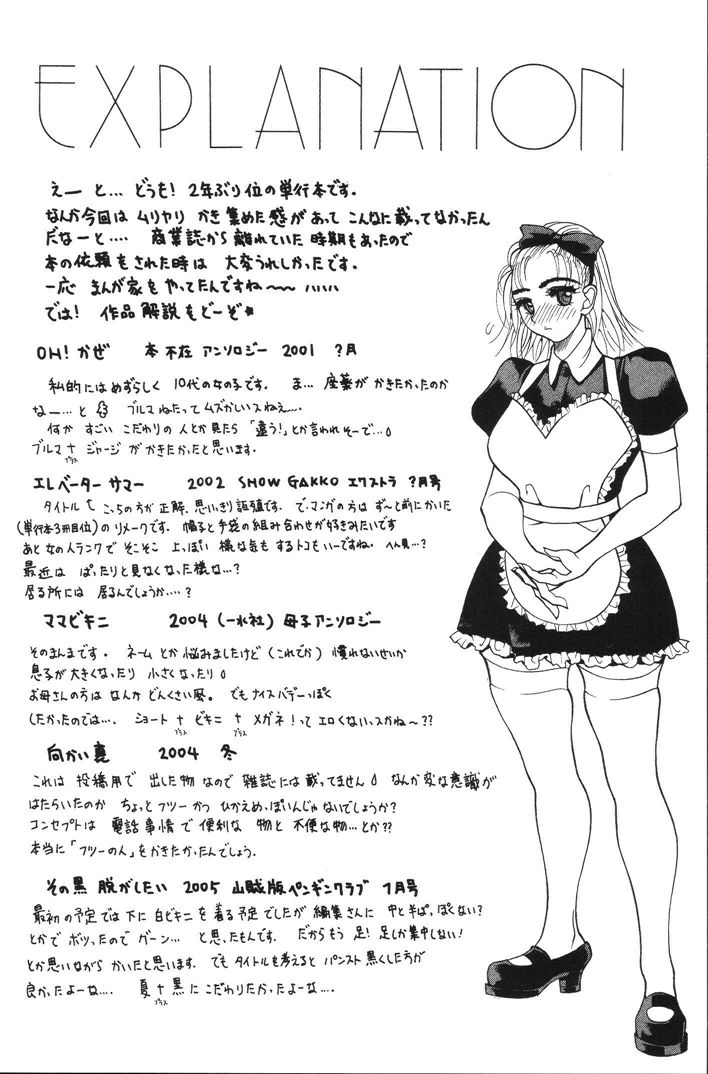 EXPLANATION
えーと… どうも! 2年ぶり位の単行本です。
なんか今回は ムリヤリ かき集めた感があって こんなに載ってなかったん
だなーと…. 商業誌から離れていた 時期もあったので
本の依頼をされた時は 大変うれしかったです。
一応 まんが家をやってたんですね〜〜 ハハハ
では! 作品解説をどーぞ★
OH!かぜ 本不在 アンソロジー 2001 ?月
私的にはめずらしく 10代の女の子です。 ま… 産業がかきたかったのか
なー…と ブルマねたって ムズかしいスねぇ〜.
何か すごい こだわりの 人とか見たら 「違う!」とか言われそーで…。
ブルマ+ジャージ がかきたかったと思います。
プラス
エレベーター サマー 2002 SNOW GAKKO エクストラ ?月号
タイトル こっちの方が正解、思いっきり誤植です。で、マンガの方は ず〜と前にかいた
(単行本3冊目位)のリメークです。帽子と手袋の組み合わせが好きみたいです
あと 女の人ランクで そこそこ 上っぽい 様な気も するトコも いーですね。へん見…?
最近は ぱったりと見なくなった様な…?
居る所には 居るんでしょうか….?
ママビキニ 2004 (一水社) 母子アンソロジー
そのまんまです。 ネーム とか 悩みましたけど (これでか) 慣れないせいか
息子が大きくなったり 小さくなったり。
お母さんの方は なんか どんくさい風。 でもナイスバデーっぽく
したかったのでは…. ショート+ビキニ+メガネ!って エロくないっスかね〜??
プラス プラス
向かい裏 2004 冬
これは 投稿用で 出した物 なので 雑誌には載ってません。 なんか変な意識が
はたらいたのか ちょっと フツー かつ ひかえめっぽいんじゃないでしょうか?
コンセプトは 電話事情で 便利な 物と 不便な物…とか??
本当に「フツーのん」をかきたかったんでしょう.
その黒 脱がしたい 2005 山賊版ペンギンクラブ 7月号
最初の予定では下に 白ビキニ を 着る予定でしたが 編集さんに 中とそぱ、ぽくない?
とかで ボツったので ガーン… と思ったもんです. だからもう 足! 足しか集中しない!
とか思いながら かいたと思います. でも タイトルも考えると パンスト 黒くした方が
良かったよーな…. 夏+黒に こだわりたかったよーな….
プラス